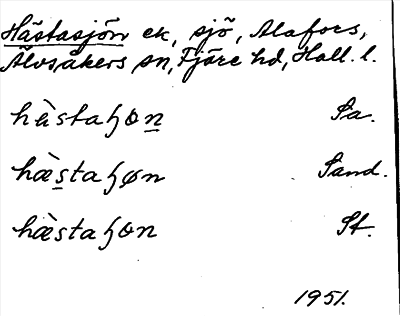 Hästasjön ek, sjö, Alafors,
Älvsåkers sn, Fjäre hd, Hall. l.
hàstaɧon Sa.
hæ̀staɧøn Sand.
hæ̀staɧon St.
1951.